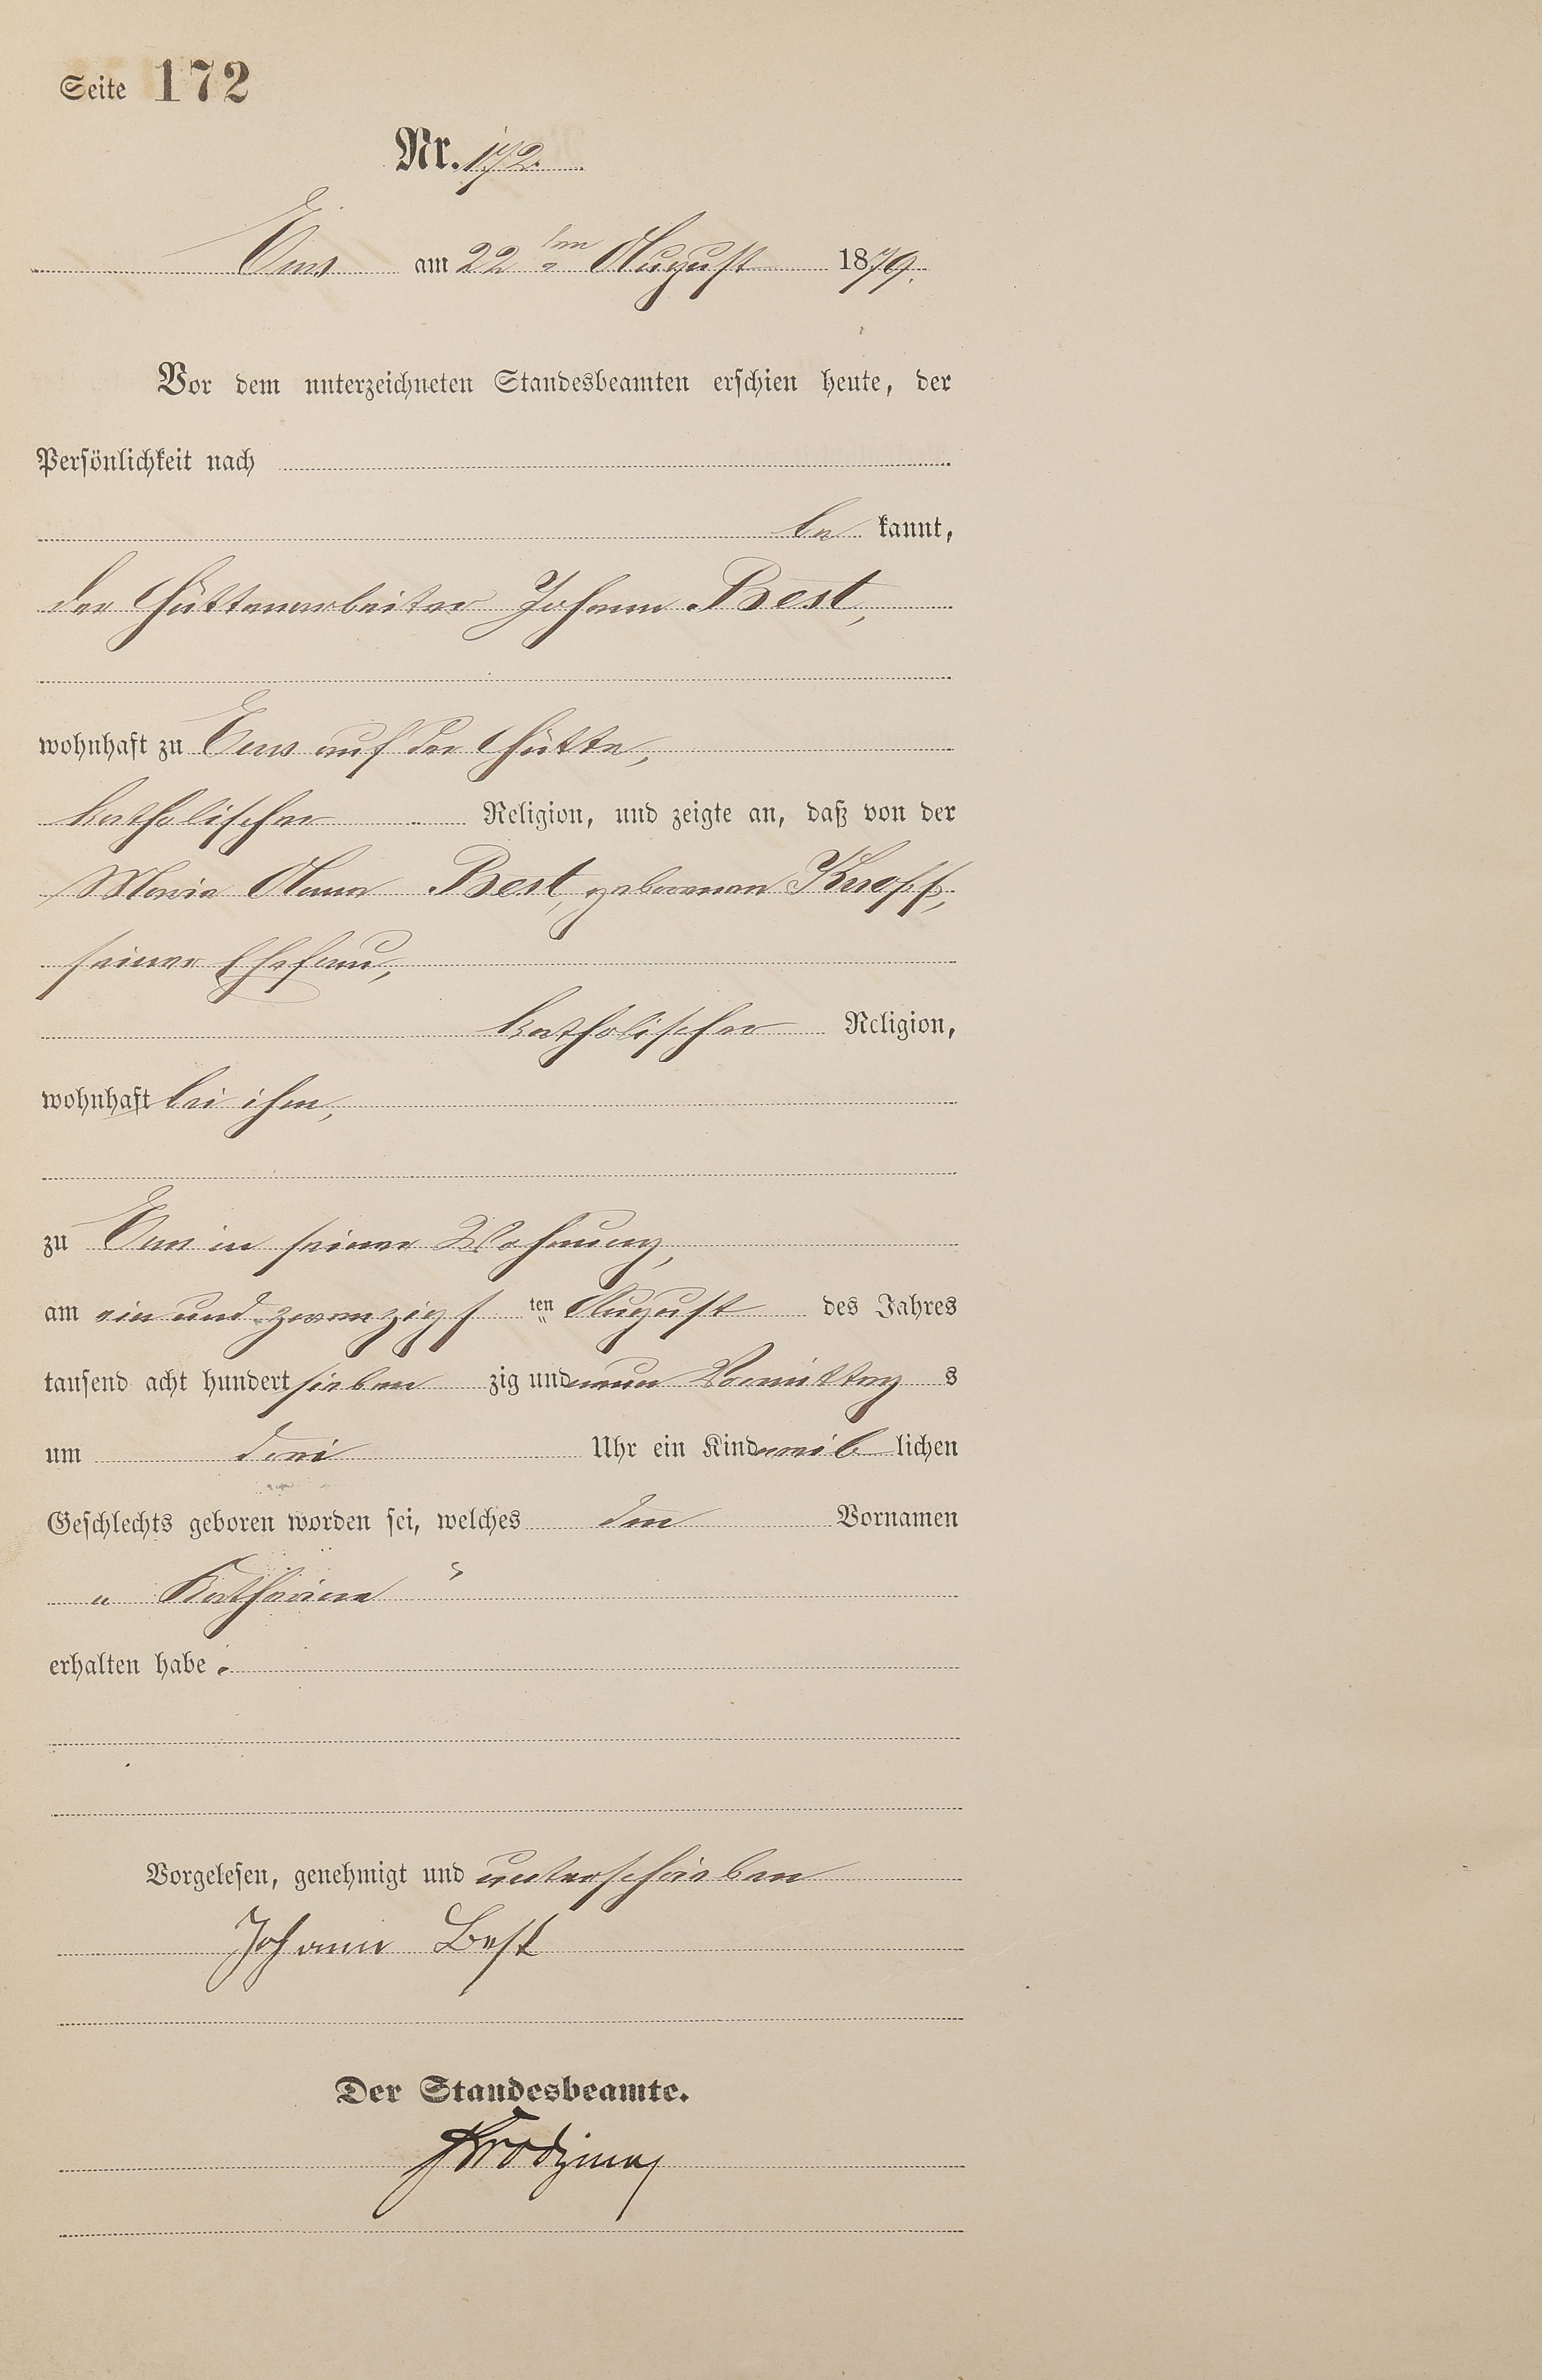 Seite 172
Nr. 172.
Ems am 22 ten August 1879.
Vor dem unterzeichneten Standesbeamten erschien heute, der
Persönlichkeit nach
be kannt,
der Hüttenarbeiter Johann Best,
wohnhaft zu Ems auf der Hütte,
katholischer Religion, und zeigte an, daß von der
Maria Anna Best, geborenen Knopp,
seiner Ehefrau,
katholischer Religion,
wohnhaft bei ihm,
zu Ems in seiner Wohnung,
am ein und zwanzigs ten August des Jahres
tausend acht hundert sieben zig und neun Vormittag s
um drei Uhr ein Kind weib lichen
Geschlechts geboren worden sei, welches den Vornamen
„ Katharina “
erhalten habe.
Vorgelesen, genehmigt und unterschrieben
Johann Best
Der Standesbeamte.